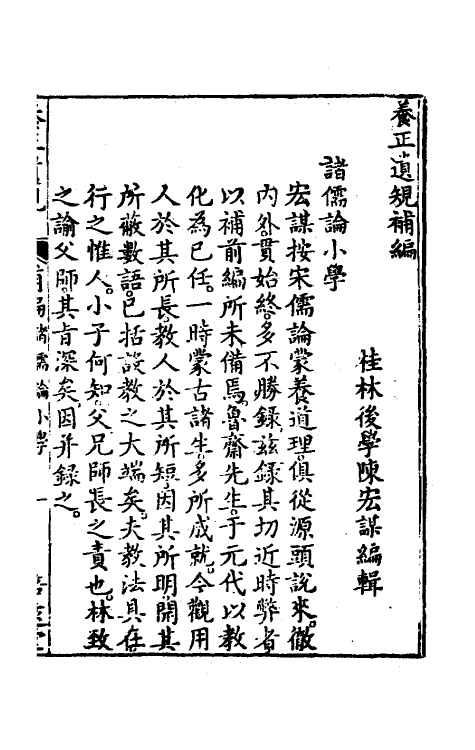 養正遺規補編
桂林後學陳宏謀編輯
諸儒論小學
宏謀按宋儒論蒙養道理。俱從源頭說來。徹
内外。貫始終。多不勝錄。玆錄其切近時弊者
以補前編所未備焉。魯齋先生。于元代以教
化為已任。一時蒙古諸生。多所成就。今觀用
人於其所長。教人於其所短。因其所明。開其
所蔽數語。已括設教之大端矣。夫教法具在
行之惟人。小子何知。父兄師長之責也。林致
之諭父師。其旨深矣。因并錄之。
補編 諸儒論小學 一